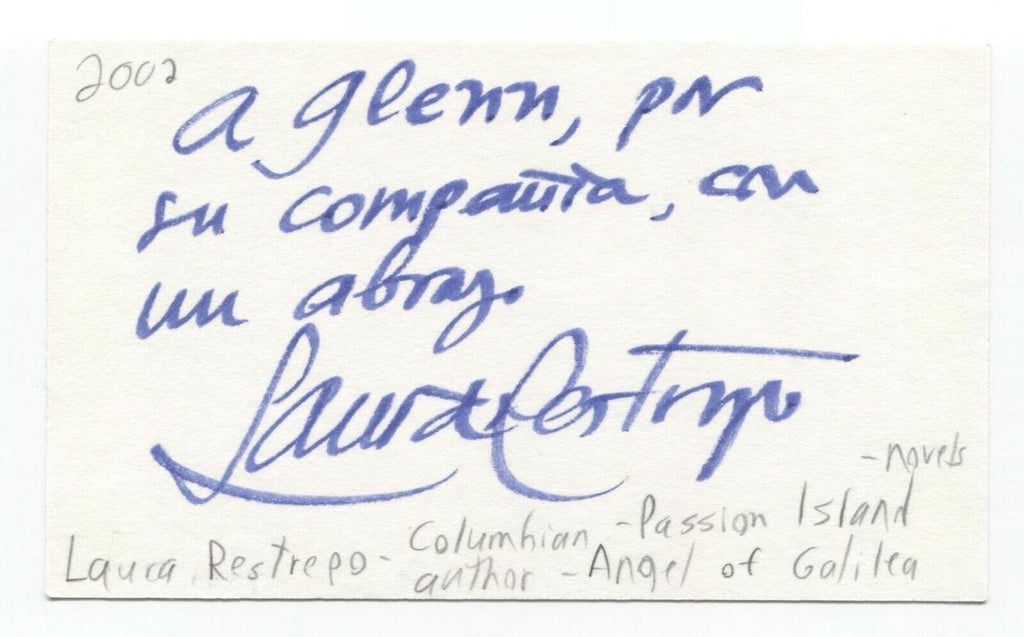 2002
A glenn, por
su compañía, con
un abrazo.
Laura Restrepo
- novels
Columbian - Passion Island
Laura Restrepo - author - Angel of Galilea